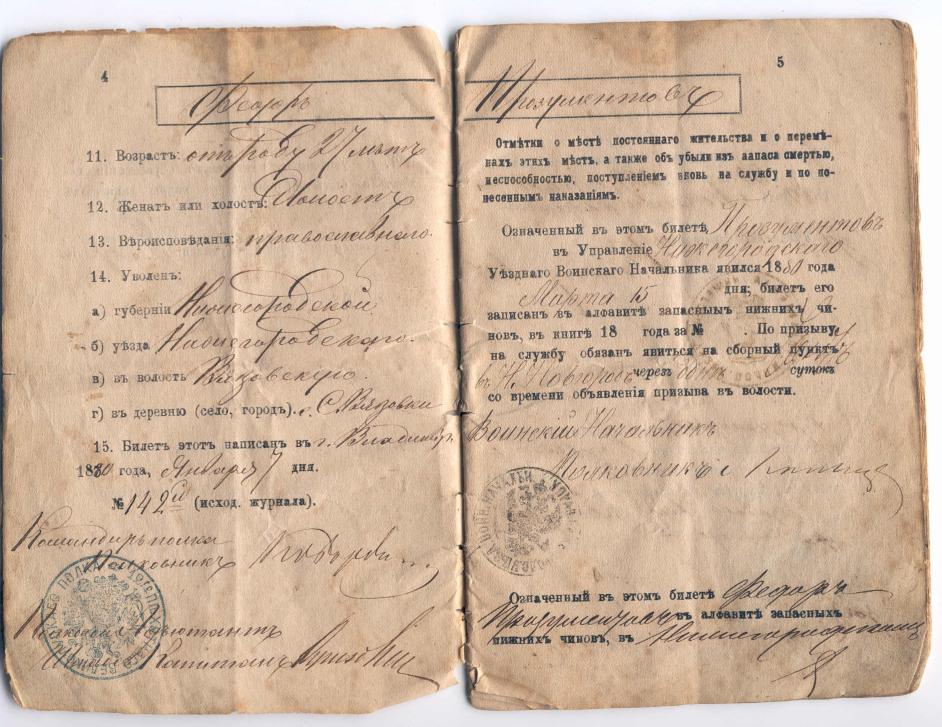 4
Федоръ
11. Возрастъ: отъ роду 27 лѣтъ
12. Женатъ или холостъ: Холостъ
13. Вѣроисповѣданія: православнаго.
14. Уволенъ:
а) губерніи Нижегородской
б) уѣзда Нижегородскаго
в) въ волость Вязовскую
г) въ деревню (село, городъ). с. Вязовки
15. Билетъ этотъ написанъ въ г. Владимирѣ
1880 года, Января 7 дня.
№ 142 (исход. журнала).
Командиръ полка
Полковникъ
Полковой Адъютантъ
Капитанъ
5
Прозументовъ
Отмѣтки о мѣстѣ постояннаго жительства и о перемѣ-
нахъ этихъ мѣстъ, а также объ убыли изъ запаса смертью,
неспособностью, поступленіемъ вновь на службу и по по-
несеннымъ наказаніямъ.
Означенный въ этомъ билетѣ, Прозументовъ
въ Управленіе Нижегородскаго
Уѣзднаго Воинскаго Начальника явился 1880 года
Марта 15 дня; билетъ его
записанъ въ алфавитѣ запасныхъ нижнихъ чи-
новъ, въ книгѣ 18 года за № . По призыву
на службу обязанъ явиться на сборный пунктъ
въ Н. Новгородъ черезъ суток
со времени объявленія призыва въ волости.
Воинскій Начальникъ
Полковникъ
Означенный въ этомъ билетѣ Федоръ
Прозументовъ въ алфавитѣ запасныхъ
нижнихъ чиновъ, въ